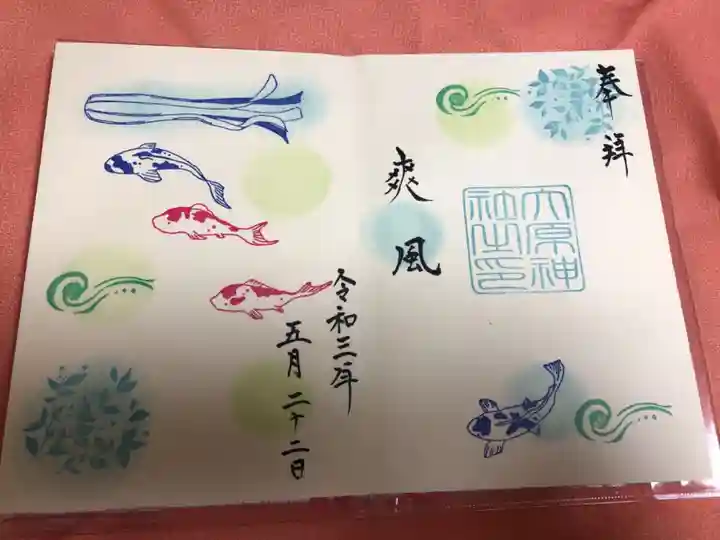 奉拝
六原神
社之印
爽風
令和三年
五月二十二日